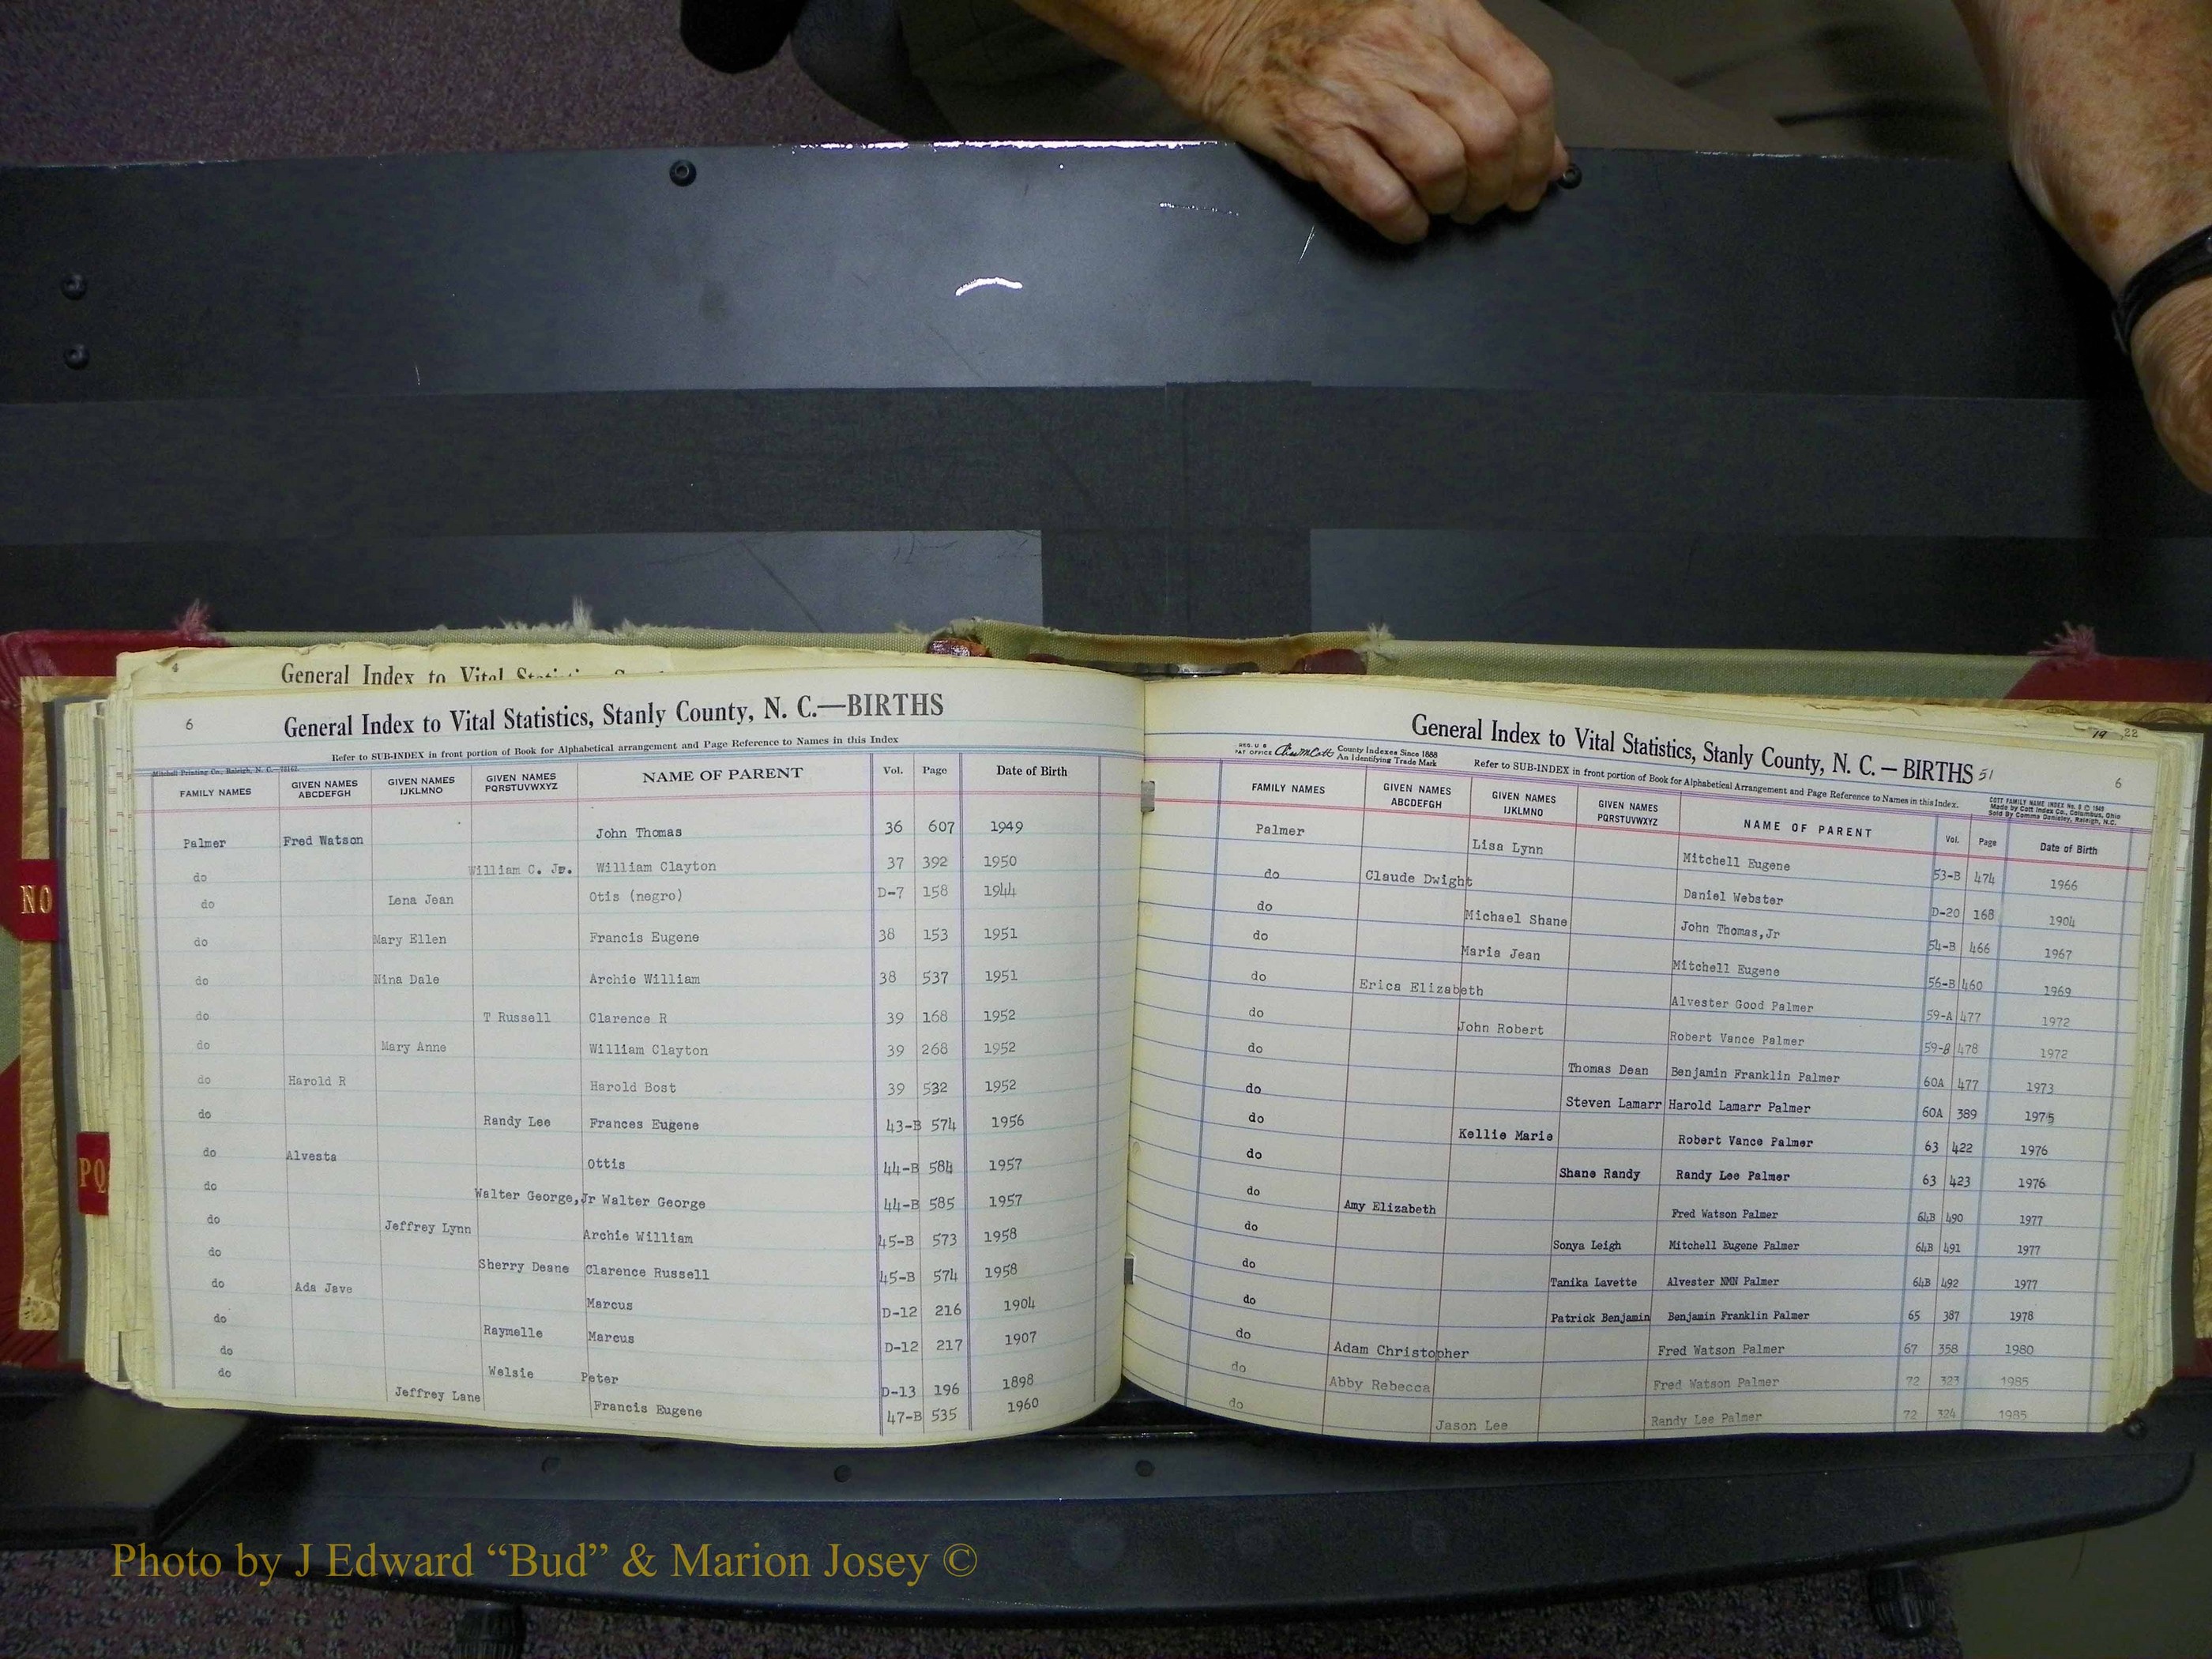 4
General Index to Vital
6
General Index to Vital Statistics, Stanly County, N. C.—BIRTHS
Refer to SUB-INDEX in front portion of Book for Alphabetical arrangement and Page Reference to Names in this Index
FAMILY NAMES GIVEN NAMES ABCDEFGH GIVEN NAMES IJKLMNO GIVEN NAMES PQRSTUVWXYZ NAME OF PARENT Vol. Page Date of Birth
Palmer Fred Watson John Thomas 36 607 1949
do William C. Jr. William Clayton 37 392 1950
do Lena Jean Otis (negro) D-7 158 1944
do Mary Ellen Francis Eugene 38 153 1951
do Nina Dale Archie William 38 537 1951
do T Russell Clarence R 39 168 1952
do Mary Anne William Clayton 39 268 1952
do Harold R Harold Bost 39 532 1952
do Randy Lee Frances Eugene 43-B 574 1956
do Alvesta Ottis 44-B 584 1957
do Walter George,Jr Walter George 44-B 585 1957
do Jeffrey Lynn Archie William 45-B 573 1958
do Sherry Deane Clarence Russell 45-B 574 1958
do Ada Jave Marcus D-12 216 1904
do Raymelle Marcus D-12 217 1907
do Welsie Peter D-13 196 1898
do Jeffrey Lane Francis Eugene 47-B 535 1960
19 22
General Index to Vital Statistics, Stanly County, N. C. — BIRTHS 51
6
REG. U S PAT OFFICE County Indexes Since 1888 An Identifying Trade Mark
Refer to SUB-INDEX in front portion of Book for Alphabetical Arrangement and Page Reference to Names in this Index.
COTT FAMILY NAME INDEX No. 8 © 1949
Made by Cott Index Co., Columbus, Ohio
FAMILY NAMES GIVEN NAMES ABCDEFGH GIVEN NAMES IJKLMNO GIVEN NAMES PQRSTUVWXYZ NAME OF PARENT Vol. Page Date of Birth
Palmer Lisa Lynn Mitchell Eugene 53-B 474 1966
do Claude Dwight Daniel Webster D-20 168 1904
do Michael Shane John Thomas,Jr 54-B 466 1967
do Maria Jean Mitchell Eugene 56-B 460 1969
do Erica Elizabeth Alvester Good Palmer 59-A 477 1972
do John Robert Robert Vance Palmer 59-B 478 1972
do Thomas Dean Benjamin Franklin Palmer 60A 477 1973
do Steven Lamarr Harold Lamarr Palmer 60A 389 1975
do Kellie Marie Robert Vance Palmer 63 422 1976
do Shane Randy Randy Lee Palmer 63 423 1976
do Amy Elizabeth Fred Watson Palmer 64B 490 1977
do Sonya Leigh Mitchell Eugene Palmer 64B 491 1977
do Tanika Lavette Alvester NMN Palmer 64B 492 1977
do Patrick Benjamin Benjamin Franklin Palmer 65 387 1978
do Adam Christopher Fred Watson Palmer 67 358 1980
do Abby Rebecca Fred Watson Palmer 72 323 1985
do Jason Lee Randy Lee Palmer 72 324 1985
NO
PQ
Photo by J Edward “Bud” & Marion Josey ©